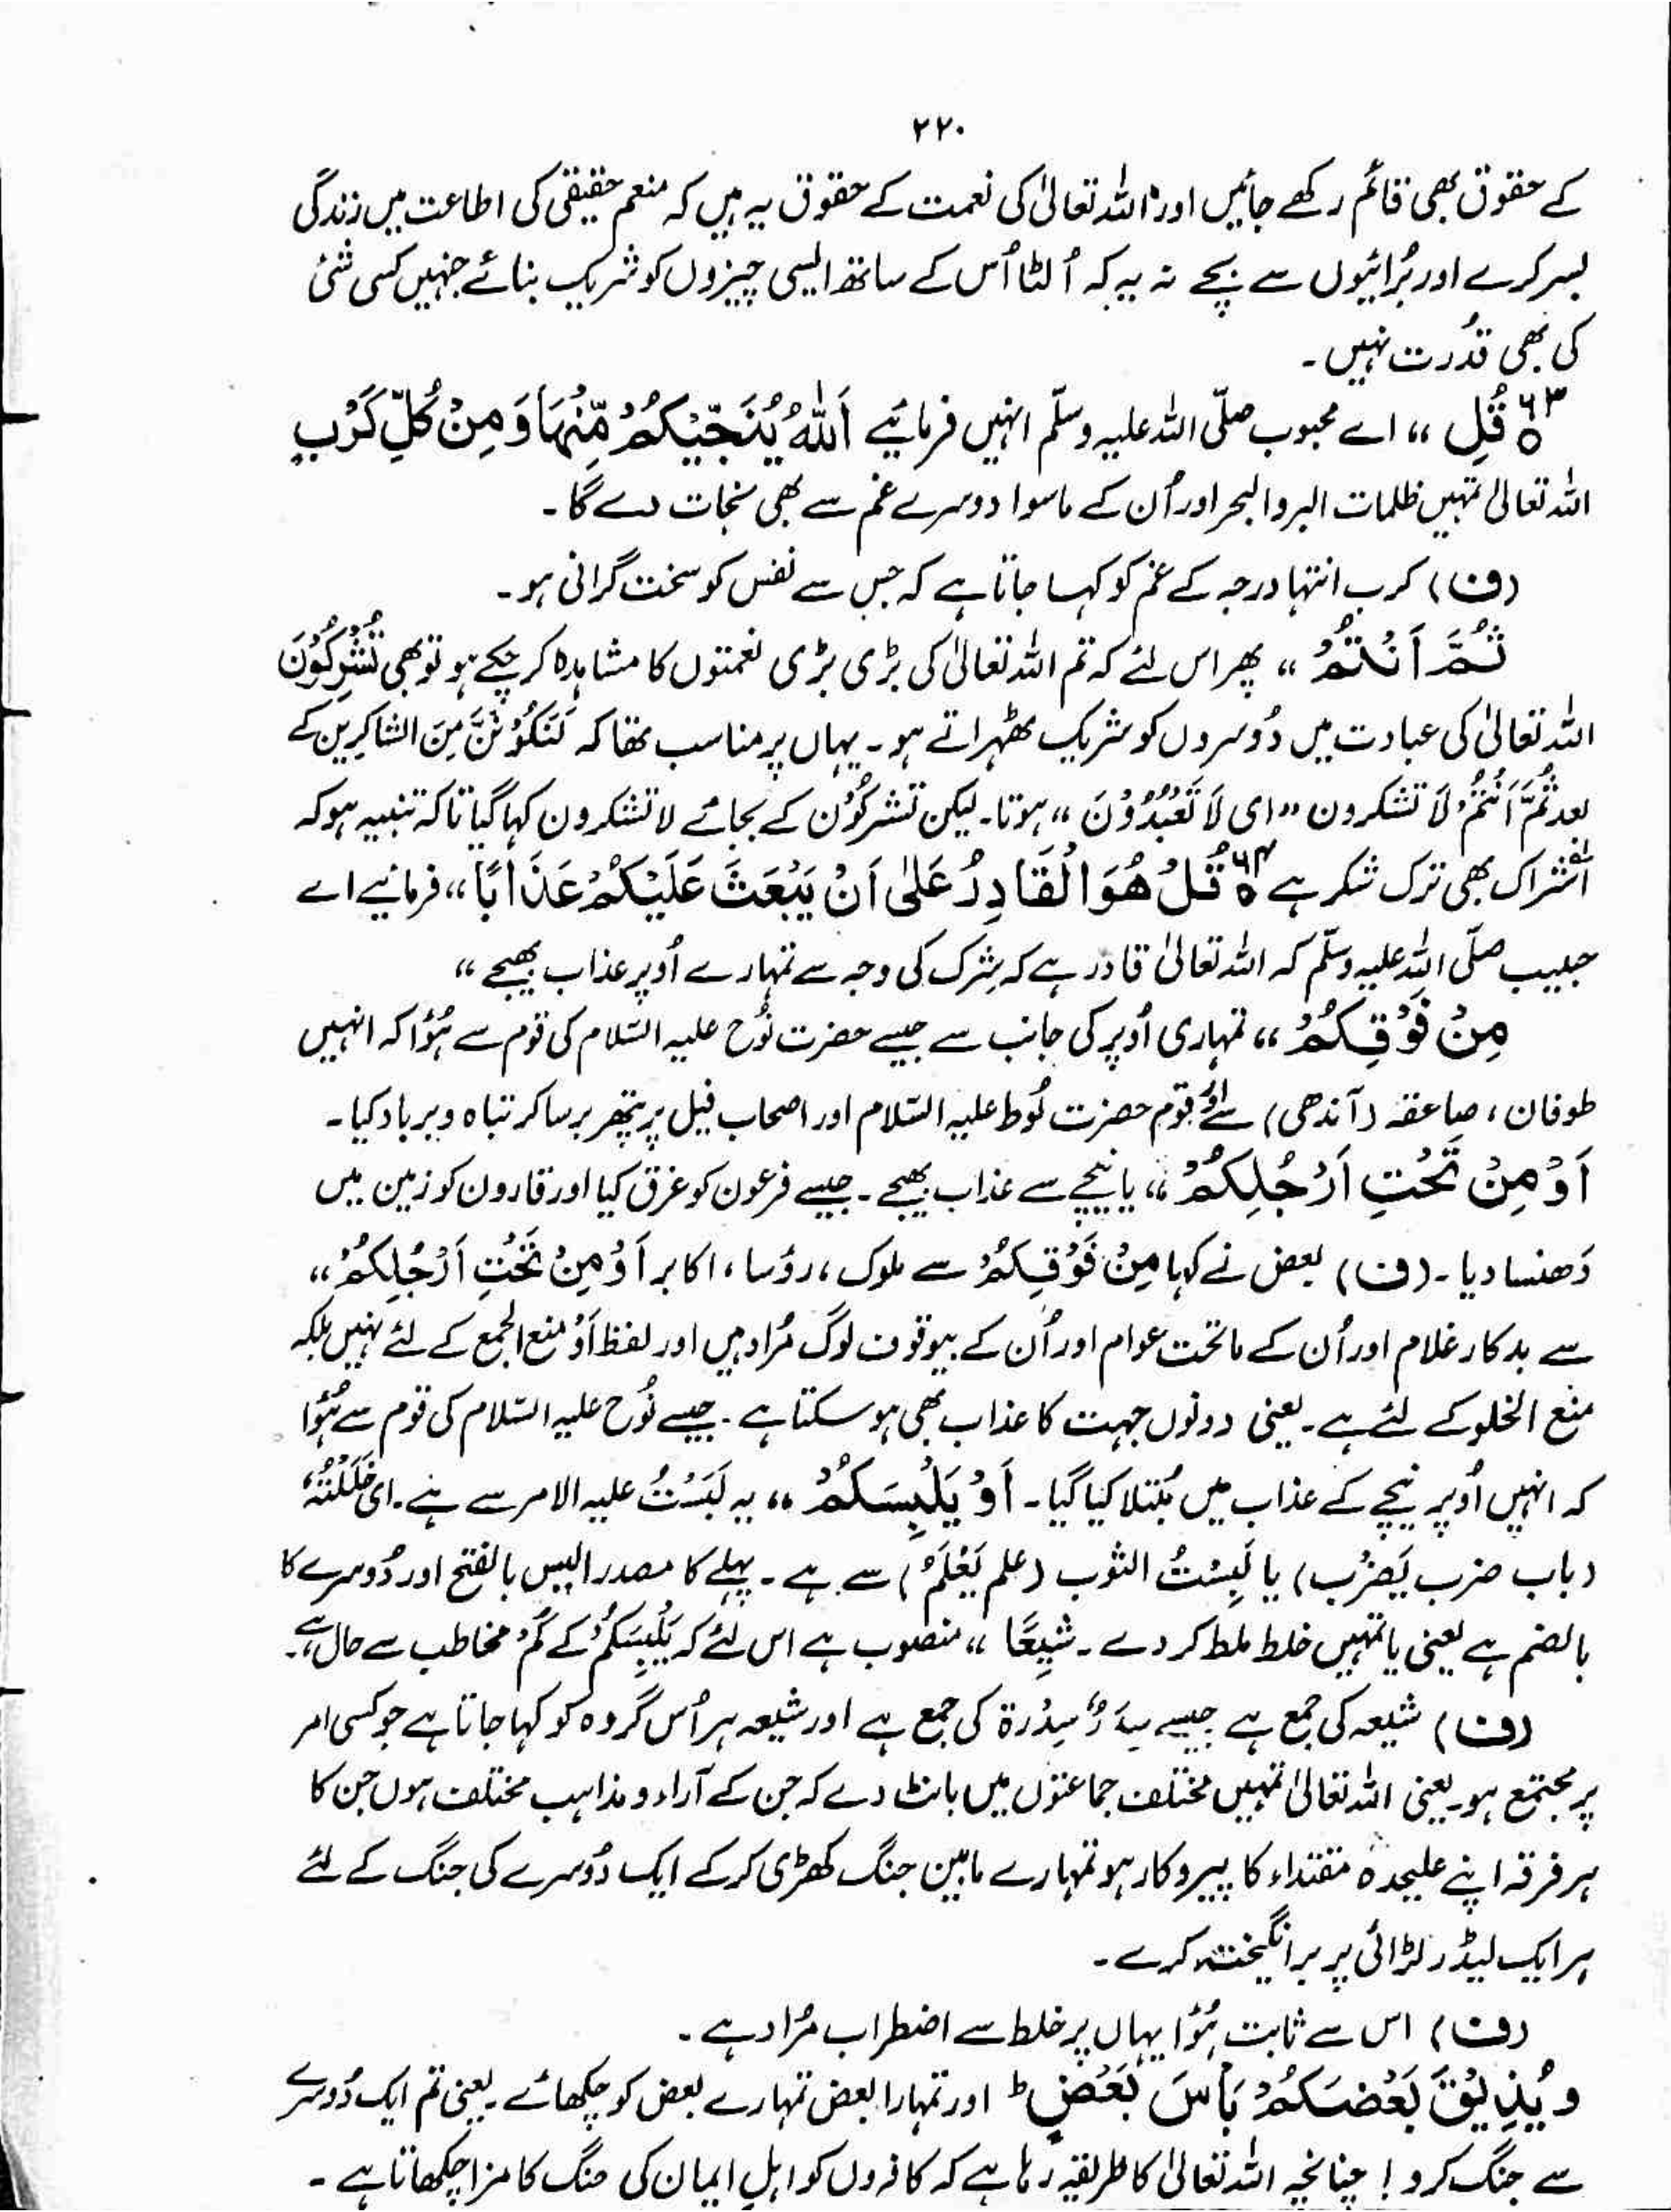 ۲۲۰
کے حقوق بھی قائم رکھے جائیں اور اللہ تعالیٰ کی نعمت کے حقوق یہ ہیں کہ منعم حقیقی کی اطاعت میں زندگی
بسر کرے اور بُرائیوں سے بچے نہ یہ کہ اُلٹا اُس کے ساتھ ایسی چیزوں کو شریک بنائے جنہیں کسی شئی
کی بھی قدُرت نہیں۔
۶۳ قُلِ ،، اے محبوب صلّی اللہ علیہ وسلّم انہیں فرمائیے اَللّٰهُ یُنَجِّیْكُمْ مِّنْهَا وَ مِنْ كُلِّ كَرْبٍ
اللہ تعالیٰ تمہیں ظلمات البر والبحر اور اُن کے ماسوا دوسرے غم سے بھی نجات دے گا۔
(ف) کرب انتہا درجہ کے غم کو کہا جاتا ہے کہ جس سے نفس کو سخت گرانی ہو۔
ثُمَّ اَنْتُمْ ،، پھر اس لئے کہ تم اللہ تعالیٰ کی بڑی بڑی نعمتوں کا مشاہدہ کر چکے ہو تو بھی تُشْرِكُوْنَ
اللہ تعالیٰ کی عبادت میں دُوسروں کو شریک ٹھہراتے ہو۔ یہاں پر مناسب تھا کہ لَنَكُوْنَنَّ مِنَ الشاکِرین کے
بعد ثُمَّ اَنْتُمْ لَا تشکرون ،، ای لَا تَعْبُدُوْنَ ،، ہوتا۔ لیکن تشرکُوْن کے بجائے لا تشکرون کہا گیا تاکہ تنبیہ ہو کہ
اشراک بھی ترک شکر ہے ۶۴ قُلْ هُوَ الْقَادِرُ عَلٰى اَنْ یَّبْعَثَ عَلَیْكُمْ عَذَابًا ،، فرمائیے اے
حبیب صلّی اللہ علیہ وسلّم کہ اللہ تعالیٰ قادر ہے کہ شِرک کی وجہ سے تمہارے اُوپر عذاب بھیجے ،،
مِنْ فَوْقِكُمْ ،، تمہاری اُوپر کی جانب سے جیسے حضرت نُوح علیہ السّلام کی قوم سے ہُوا کہ انہیں
طوفان، صاعقہ (آندھی) سے اور قوم حضرت لُوط علیہ السّلام اور اصحاب فیل پر پتھر برسا کر تباہ و برباد کیا۔
اَوْ مِنْ تَحْتِ اَرْجُلِكُمْ ،، یا نیچے سے عذاب بھیجے۔ جیسے فرعون کو غرق کیا اور قارون کو زمین میں
دَھنسا دیا۔ (ف) بعض نے کہا مِنْ فَوْقِكُمْ سے ملوک، رؤسا، اکابر اَوْ مِنْ تَحْتِ اَرْجُلِكُمْ ،،
سے بدکار غلام اور اُن کے ماتحت عوام اور اُن کے بیوقوف لوگ مُراد ہیں اور لفظ اَوْ منع الجمع کے لئے نہیں بلکہ
منع الخلو کے لئے ہے۔ یعنی دونوں جہت کا عذاب بھی ہو سکتا ہے۔ جیسے نُوح علیہ السّلام کی قوم سے ہُوا
کہ انہیں اُوپر نیچے کے عذاب میں مُبتلا کیا گیا۔ اَوْ یَلْبِسَكُمْ ،، یہ لَبَسْتُ علیہ الامر سے ہے۔ ای خَلَطْتُهُ
(باب ضرب یَضرِب) یا لَبِسْتُ الثوب (علم یَعْلَمُ) سے ہے۔ پہلے کا مصدر البس بالفتح اور دُوسرے کا
بالضم ہے یعنی یا تمہیں خلط ملط کر دے۔ شِیَعًا ،، منصوب ہے اس لئے کہ یَلْبِسَكُمْ کے كُمْ مخاطب سے حال ہے۔
(ف) شیعہ کی جمع ہے جیسے سِدَرٌ سِدْرَة کی جمع ہے اور شیعہ ہر اُس گروہ کو کہا جاتا ہے جو کسی امر
پر مجتمع ہو۔ یعنی اللہ تعالیٰ تمہیں مختلف جماعتوں میں بانٹ دے کہ جن کے آراء و مذاہب مختلف ہوں جن کا
ہر فرقہ اپنے علیحدہ مقتداء کا پیروکار ہو تمہارے مابین جنگ کھڑی کر کے ایک دُوسرے کی جنگ کے لئے
ہر ایک لیڈر لڑائی پر برانگیختہ کرے۔
(ف) اس سے ثابت ہُوا یہاں پر خلط سے اضطراب مُراد ہے۔
و یُذِیْقَ بَعْضَكُمْ بَاْسَ بَعْضٍ ط اور تمہارا بعض تمہارے بعض کو چکھائے۔ یعنی تم ایک دُوسرے
سے جنگ کرو! چنانچہ اللہ تعالیٰ کا طریقہ رہا ہے کہ کافروں کو اہلِ ایمان کی جنگ کا مزا چکھاتا ہے۔